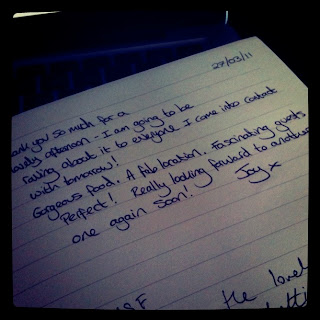 27/03/11
ank you so much for a
ovely afternoon - I am going to be
raving about it to everyone I come into contact
with tomorrow!
Gorgeous food. A fab location. Fascinating guests
Perfect! Really looking forward to another
one again soon! Joy x
the lovel